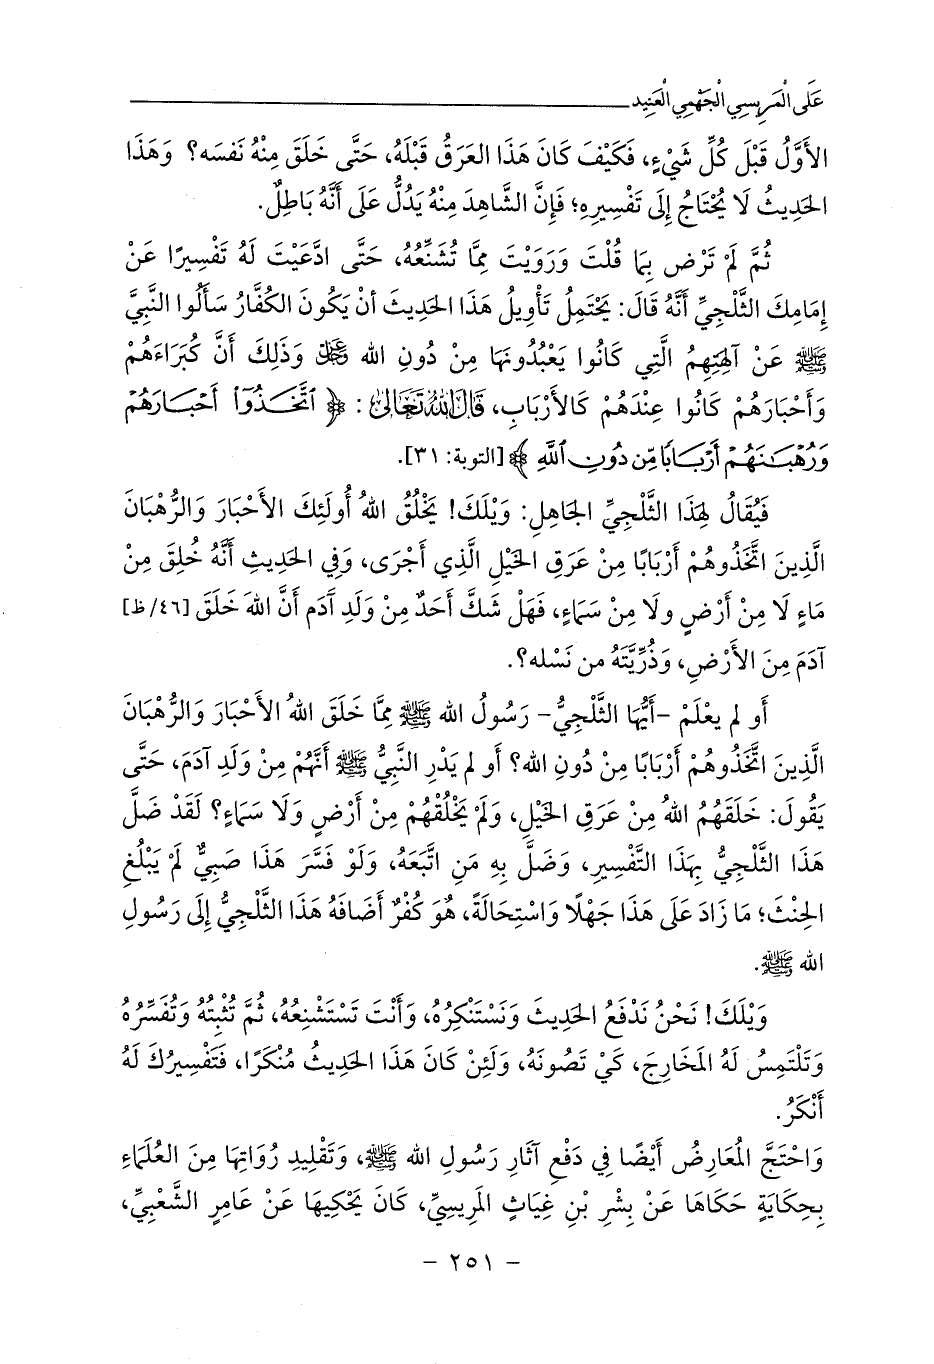 عَلَى الْمَرِيسِي الْجَهْمِي الْعَنِيد
الأَوَّلُ قَبْلَ كُلِّ شَيْءٍ، فَكَيْفَ كَانَ هَذَا العَرَقُ قَبْلَهُ، حَتَّى خَلَقَ مِنْهُ نَفسَه؟ وَهَذَا
الحَدِيثُ لَا يُحْتَاجُ إِلَى تَفْسِيرِهِ؛ فَإِنَّ الشَّاهِدَ مِنْهُ يَدُلُّ عَلَى أَنَّهُ بَاطِلٌ.
ثُمَّ لَمْ تَرْضِ بِمَا قُلْتَ وَرَوَيْتَ مِمَّا تُشَنِّعُهُ، حَتَّى ادَّعَيْتَ لَهُ تَفْسِيرًا عَنْ
إِمَامِكَ الثَّلْجِيِّ أَنَّهُ قَالَ: يَحْتَمِلُ تَأْوِيلُ هَذَا الحَدِيثَ أنْ يَكُونَ الكُفَّارُ سَأَلُوا النَّبِيَّ
ﷺ عَنْ آلِهَتِهِمُ الَّتِي كَانُوا يَعْبُدُونَهَا مِنْ دُونِ الله ﷻ وَذَلِكَ أَنَّ كُبَرَاءَهُمْ
وَأَحْبَارَهُمْ كَانُوا عِنْدَهُمْ كَالأَرْبَابِ، قَالَ اللهُ تَعَالَى: ﴿ ٱتَّخَذُوٓا۟ أَحْبَـارَهُمْ
وَرُهْبَـٰنَهُمْ أَرْبَـابًا مِّن دُونِ ٱللَّهِ ﴾ [التوبة: ٣١].
فَيُقَالُ لِهَذَا الثَّلْجِيِّ الجَاهِلِ: وَيْلَكَ! يَخْلُقُ اللهُ أُولَئِكَ الأَحْبَارَ وَالرُّهْبَانَ
الَّذِينَ اتَّخَذُوهُمْ أَرْبَابًا مِنْ عَرَقِ الخَيْلِ الَّذِي أَجْرَى، وَفِي الحَدِيثِ أَنَّهُ خُلِقَ مِنْ
مَاءٍ لَا مِنْ أَرْضٍ ولَا مِنْ سَمَاءٍ، فَهَلْ شَكَّ أَحَدٌ مِنْ وَلَدِ آدَم أَنَّ اللهَ خَلَقَ [٤٦/ظ]
آدَمَ مِنَ الأَرْضِ، وَذُرِّيَّتَهُ من نَسْله؟.
أَو لم يعْلَمْ -أَيُّهَا الثَّلْجِيُّ- رَسُولُ الله ﷺ مِمَّا خَلَقَ اللهُ الأَحْبَارَ وَالرُّهْبَانَ
الَّذِينَ اتَّخَذُوهُمْ أَرْبَابًا مِنْ دُونِ الله؟ أَو لم يَدْرِ النَّبِيُّ ﷺ أَنَّهُمْ مِنْ وَلَدِ آدَمَ، حَتَّى
يَقُولَ: خَلَقَهُمُ اللهُ مِنْ عَرَقِ الخَيْلِ، وَلَمْ يَخْلُقْهُمْ مِنْ أَرْضٍ وَلَا سَمَاءٍ؟ لَقَدْ ضَلَّ
هَذَا الثَّلْجِيُّ بِهَذَا التَّفْسِيرِ، وَضَلَّ بِهِ مَنِ اتَّبَعَهُ، وَلَوْ فَسَّرَ هَذَا صَبِيٌّ لَمْ يَبْلُغِ
الحِنْثَ؛ مَا زَادَ عَلَى هَذَا جَهْلًا وَاسْتِحَالَةً، هُوَ كُفْرٌ أَضَافَهُ هَذَا الثَّلْجِيُّ إِلَى رَسُولِ
الله ﷺ.
وَيْلَكَ! نَحْنُ نَدْفَعُ الحَدِيثَ وَنَسْتَنْكِرُهُ، وَأَنْتَ تَسْتَشْنِعُهُ، ثُمَّ تُثْبِتُهُ وَتُفَسِّرُهُ
وَتَلْتَمِسُ لَهُ المَخَارِجَ، كَيْ تَصُونَهُ، وَلَئِنْ كَانَ هَذَا الحَدِيثُ مُنْكَرًا، فَتَفْسِيرُكَ لَهُ
أَنْكَرُ.
وَاحْتَجَّ المُعَارِضُ أَيْضًا فِي دَفْعِ آثَارِ رَسُولِ الله ﷺ، وَتَقْلِيدِ رُوَاتِهَا مِنَ العُلَمَاءِ
بِحِكَايَةٍ حَكَاهَا عَنْ بِشْرِ بْنِ غِيَاثٍ المَرِيسِيِّ، كَانَ يَحْكِيهَا عَنْ عَامِرٍ الشَّعْبِيِّ،
- ٢٥١ -